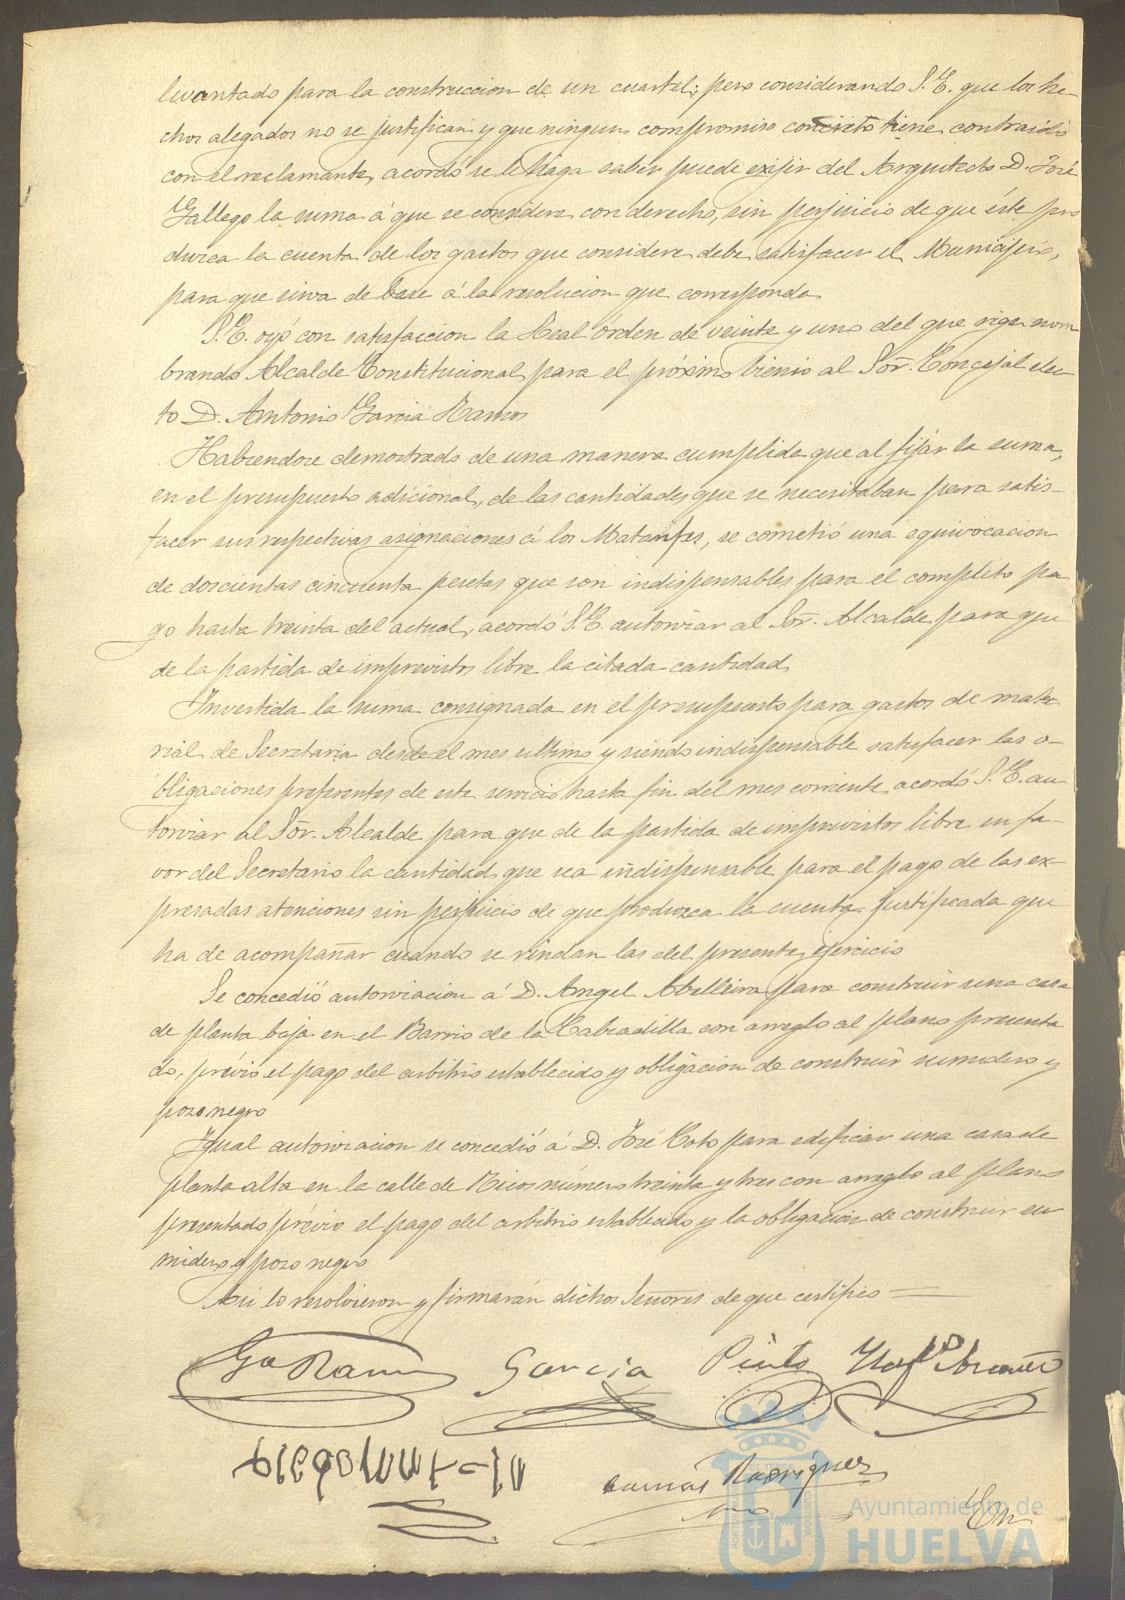 levantado para la construccion de un cuartel; pero considerando S.E. que los he-
chos alegados no se justifican y que ningun compromiso concreto tiene contraido
con el reclamante, acordó se le haga saber puede exijir del Arquitecto D. José
Gallego la suma á que se considere con derecho, sin perjuicio de que éste pro
duzca la cuenta de los gastos que considere debe satisfacer el Municipio,
para que sirva de base á la resolucion que corresponda
S.E. oyó con satisfaccion la Real órden de veinte y uno del que rige nom
brando Alcalde Constitucional para el próximo bienio al Sor. Concejal elec-
to D. Antonio Garcia Ramos
Habiendose demostrado de una manera cumplida que al fijár la suma,
en el presupuesto adicional, de las cantidades que se necesitaban para satis-
facer sus respectivas asignaciones á los Matarifes, se cometió una equivocacion
de doscientas cincuenta pesetas que son indispensables para el completo pa
go hasta treinta del actual, acordó S.E. autorizar al Sor. Alcalde para que
de la partida de imprevistos libre la citada cantidad
Invertida la suma consignada en el presupuesto para gastos de mate-
rial de Secretaria desde el mes último y siendo indispensable satisfacer las o-
bligaciones preferentes de este servicio hasta fin del mes corriente, acordó S.E. au
torizar al Sor. Alcalde para que de la partida de imprevistos libre en fa-
vor del Secretario la cantidad que sea indispensable para el pago de las ex-
presadas atenciones sin perjuicio de que produzca la cuenta justificada que
ha de acompañar cuando se rindan las del presente ejercicio
Se concedió autorizacion á D. Angel Abelleira para construir una casa
de planta baja en el Barrio de la con arreglo al plano presenta
do, prévio el pago del arbitrio establecido y obligacion de construir sumidero y
pozo negro
Igual autorizacion se concedió á D. José Coto para edificar una casa de
planta alta en la calle de Ricos número treinta y tres con arreglo al plano
presentado prévio el pago del arbitrio establecido y la obligacion de construir su
midero y pozo negro
Asi lo resolvieron y firmarán dichos Señores de que certifico =
Ga Ramos Garcia Pinto
Rodriguez
Ayuntamiento de
HUELVA